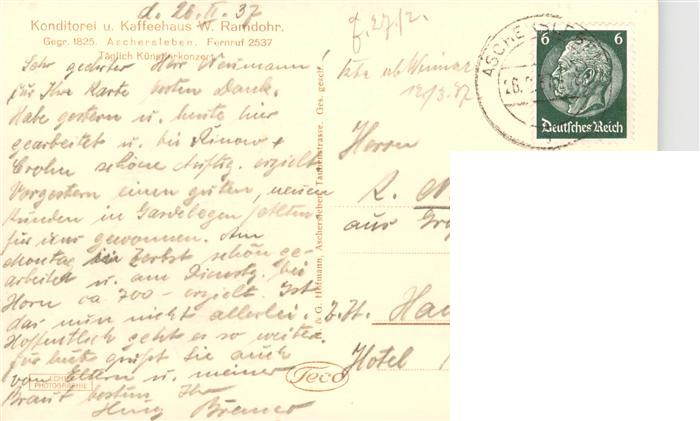 d. 26. II. 37
Konditorei u. Kaffeehaus W. Ramdohr.
Gegr. 1825. Aschersleben. Fernruf 2537
Täglich Künstlerkonzert
Sehr geehrter Herr Neumann!
für Ihre Karte besten Dank.
Habe gestern u. heute hier
gearbeitet u. bei Rinow +
Crohn schöne Auftrg. erzielt
Vorgestern einen guten, neuen
Kunden in Gardelegen
für uns gewonnen. Am
Montag in Zerbst schön ge-
arbeitet u. am Dienstg. bei
Horn ca 700 - erzielt. Ist
das nun nicht allerlei.
Hoffentlich geht es so weiter.
für heute grüßt Sie auch
von Eltern u. meiner
Braut bestens Ihr
ECHTE
PHOTOGRAPHIE
& G. Hofmann, Aschersleben, Taubenstrasse. Ges. gesch.
Teco
f. 27/2.
ab Weimar
12/3.37
ASCHERSLEBEN
26.2.
6 6
Deutsches Reich
Herrn
R. N
aus
z. Zt. Han
Hotel